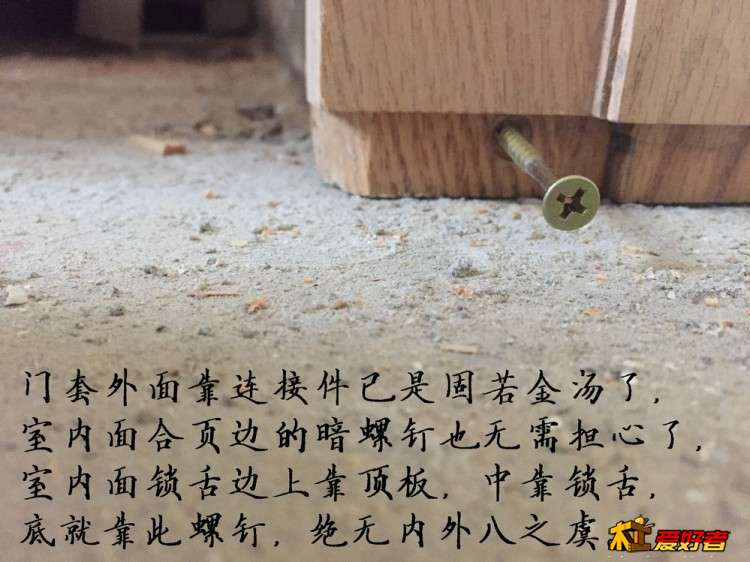 门套外面靠连接件已是固若金汤了，
室内面合页边的暗螺钉也无需担心了，
室内面锁舌边上靠顶板，中靠锁舌，
底就靠此螺钉，绝无内外八之虞
木工爱好者